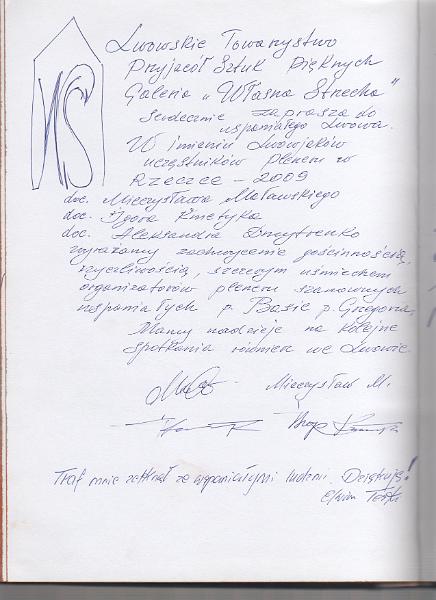 WS
Lwowskie Towarzystwo
Przyjaciół Sztuk Pięknych
Galeria „Własna Strzecha"
serdecznie zaprasza do
wspaniałego Lwowa.
W imieniu Lwowjaków
uczęstników pleneru w
Rzeczce - 2009
doc. Mieczysława Maławskiego
doc. Igora Kmetyka
doc. Aleksandra Dmytrenko
wyrażamy zachwycenie gościnnością,
życzliwością, szczerym uśmiechem
organizatorów pleneru szanownych
wspaniałych p. Basie p. Gregorza,
Mamy nadzieje na kolejne
spotkania również we Lwowie.
Mieczysław M.
Traf mnie zetknął ze wspaniałymi ludźmi. Dziękuję!